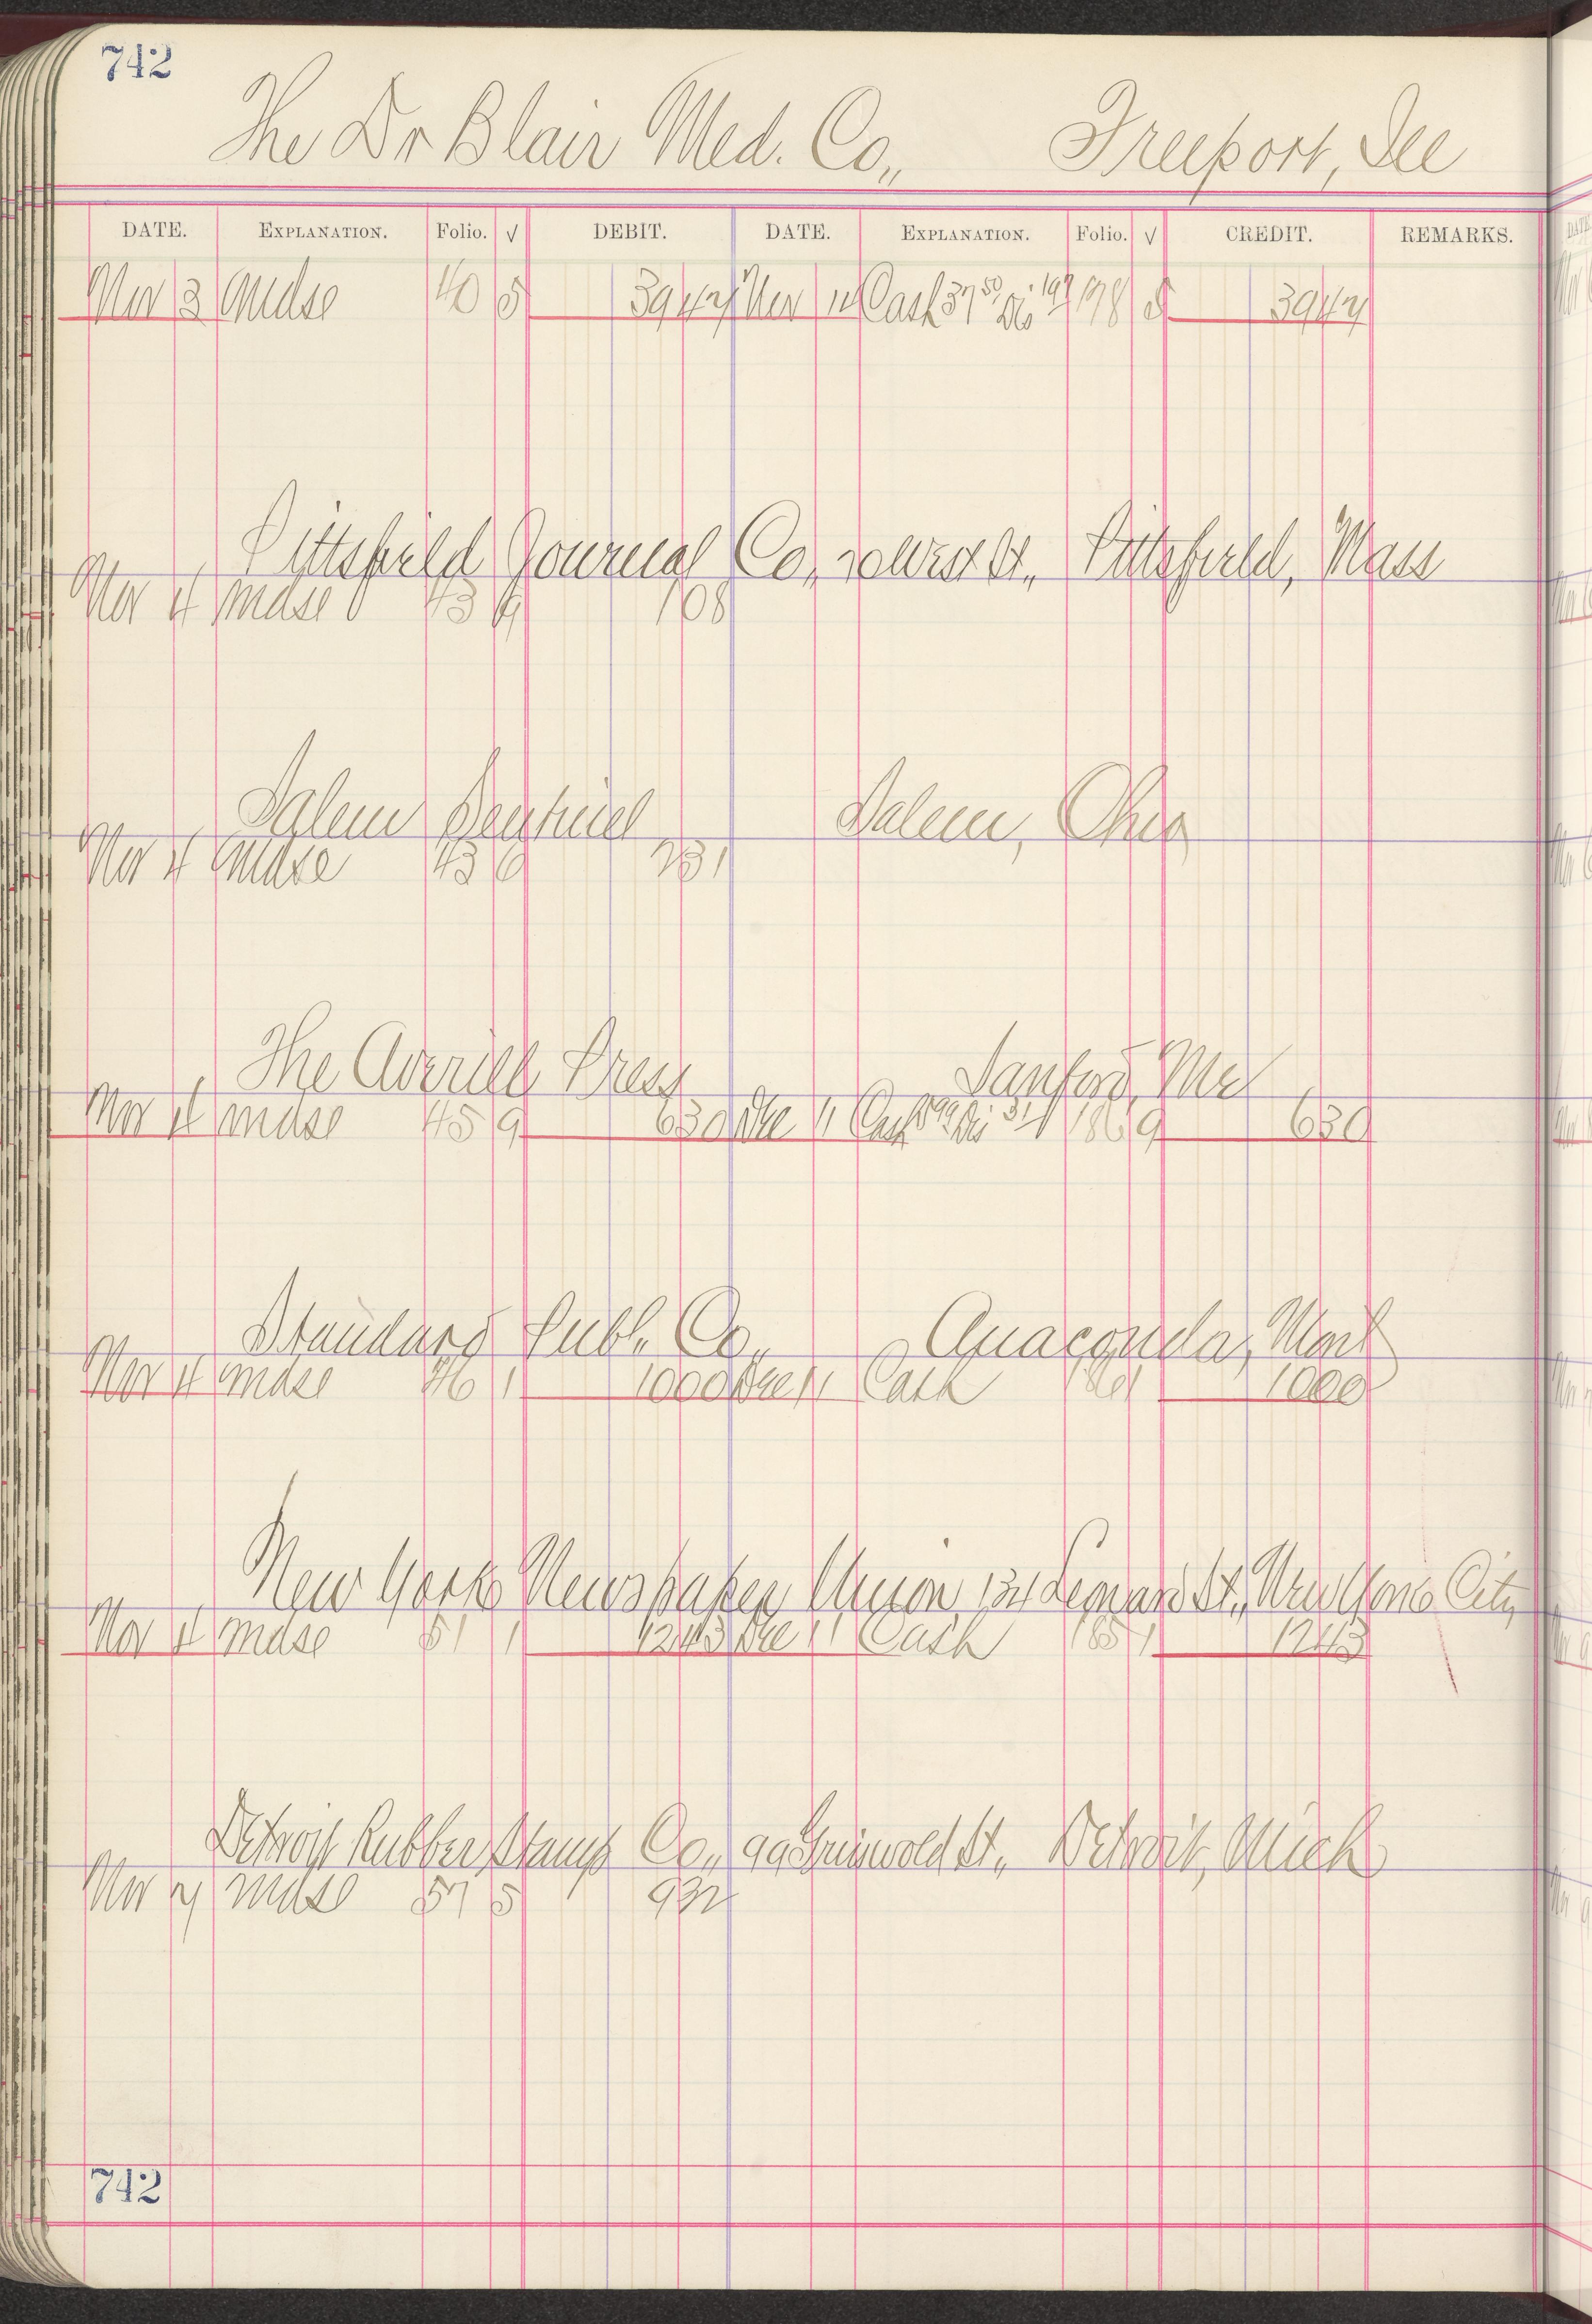 742
The Dr Blair Med. Co., Freeport, Ill
DATE. EXPLANATION. Folio. √ DEBIT. DATE. EXPLANATION. Folio. √ CREDIT. REMARKS.
Nov 3 Mdse 40 5 3947 Nov Cash 37 50 Dis 1 97 98 5 3947
Pittsfield Journal Co., West St., Pittsfield, Mass
Nov 4 Mdse 43 108
Salem Sentinel Salem, Ohio
Nov 4 Mdse 43 6 231
The Averill Press Sanford, Me
Nov 4 Mdse 45 9 630 Dec 11 Cash Dis 31 186 9 630
Standard Publ. Co., Anaconda, Mont
Nov 4 Mdse 46 1 1000 Dec 11 Cash 1000
New York Newspaper Union, 134 Leonard St., New York City
Nov 4 Mdse 51 1 1243 Dec 11 Cash 185 1 1243
Detroit Rubber Stamp Co., 99 Griswold St., Detroit, Mich
Nov 7 Mdse 57 5 932
742